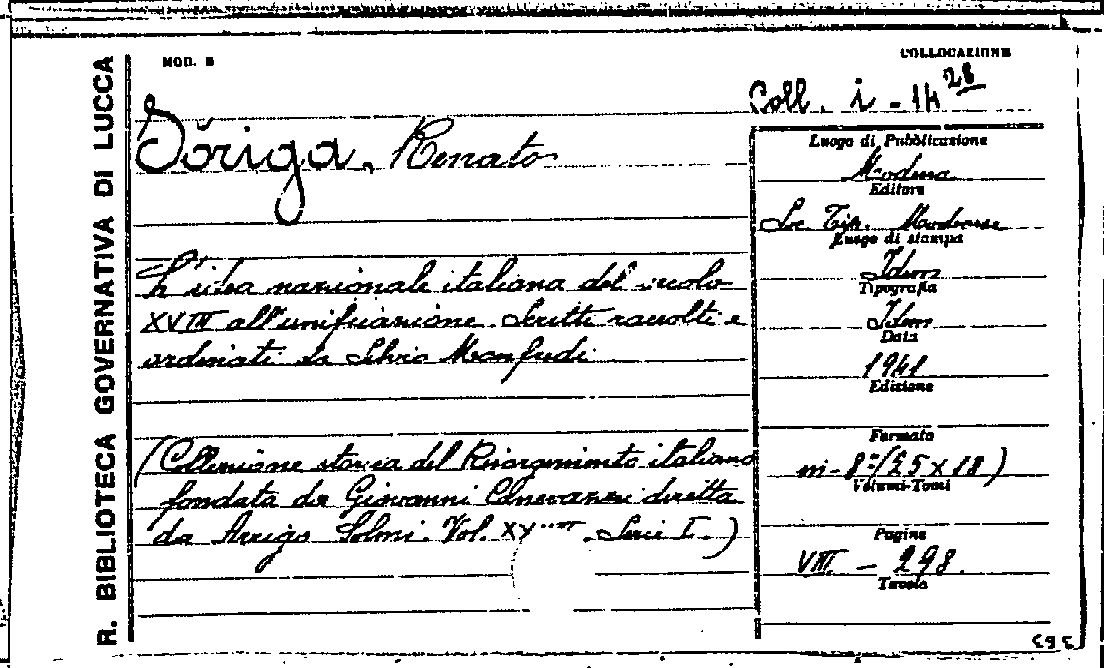 R. BIBLIOTECA GOVERNATIVA DI LUCCA
MOD. B
COLLOCAZIONE
Coll. i - 14 28
Sòriga, Renato
L'idea nazionale italiana del secolo
XVIII all'unificazione. Scritti raccolti e
ordinati da Silvio Manfredi.
(Collezione storica del Risorgimento italiano
fondata da Giovanni Canevazzi diretta
da Arrigo Solmi. Vol. Serie I.)
Luogo di Pubblicazione
Modena
Editore
Soc. Tip. Modenese
Luogo di stampa
Idem
Tipografia
Idem
Data
1941
Edizione
Formato
in-8º (25 x 18)
Volumi-Tomi
Pagine
VIII - 298.
Tavole